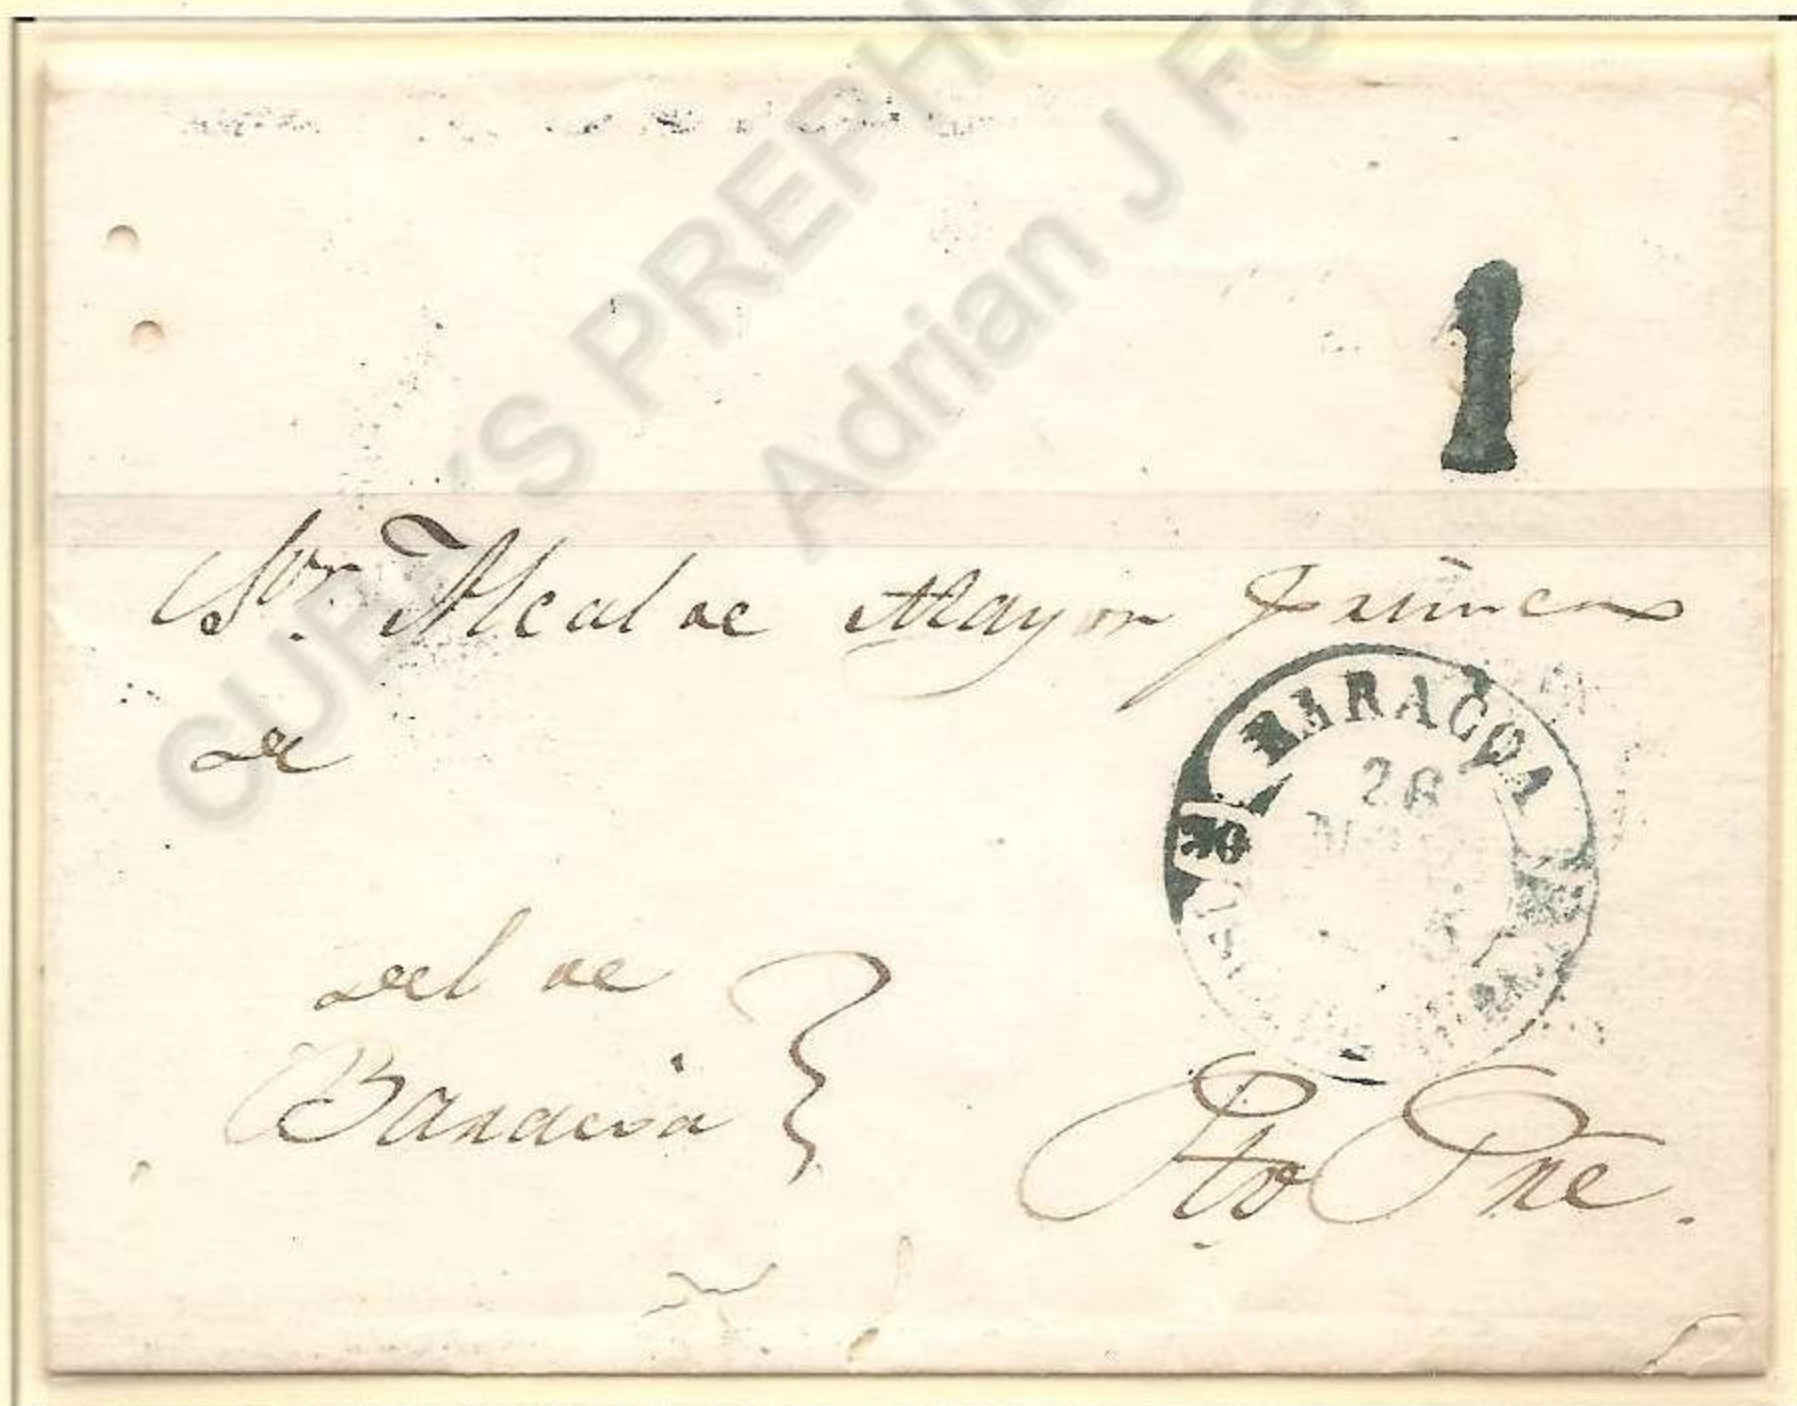 CUBA'S PREPHIL
Adrian J Fe
1
Sor. Alcalde Mayor Primero
de
BARACOA
28
del de
Baracoa
Pto Pne.